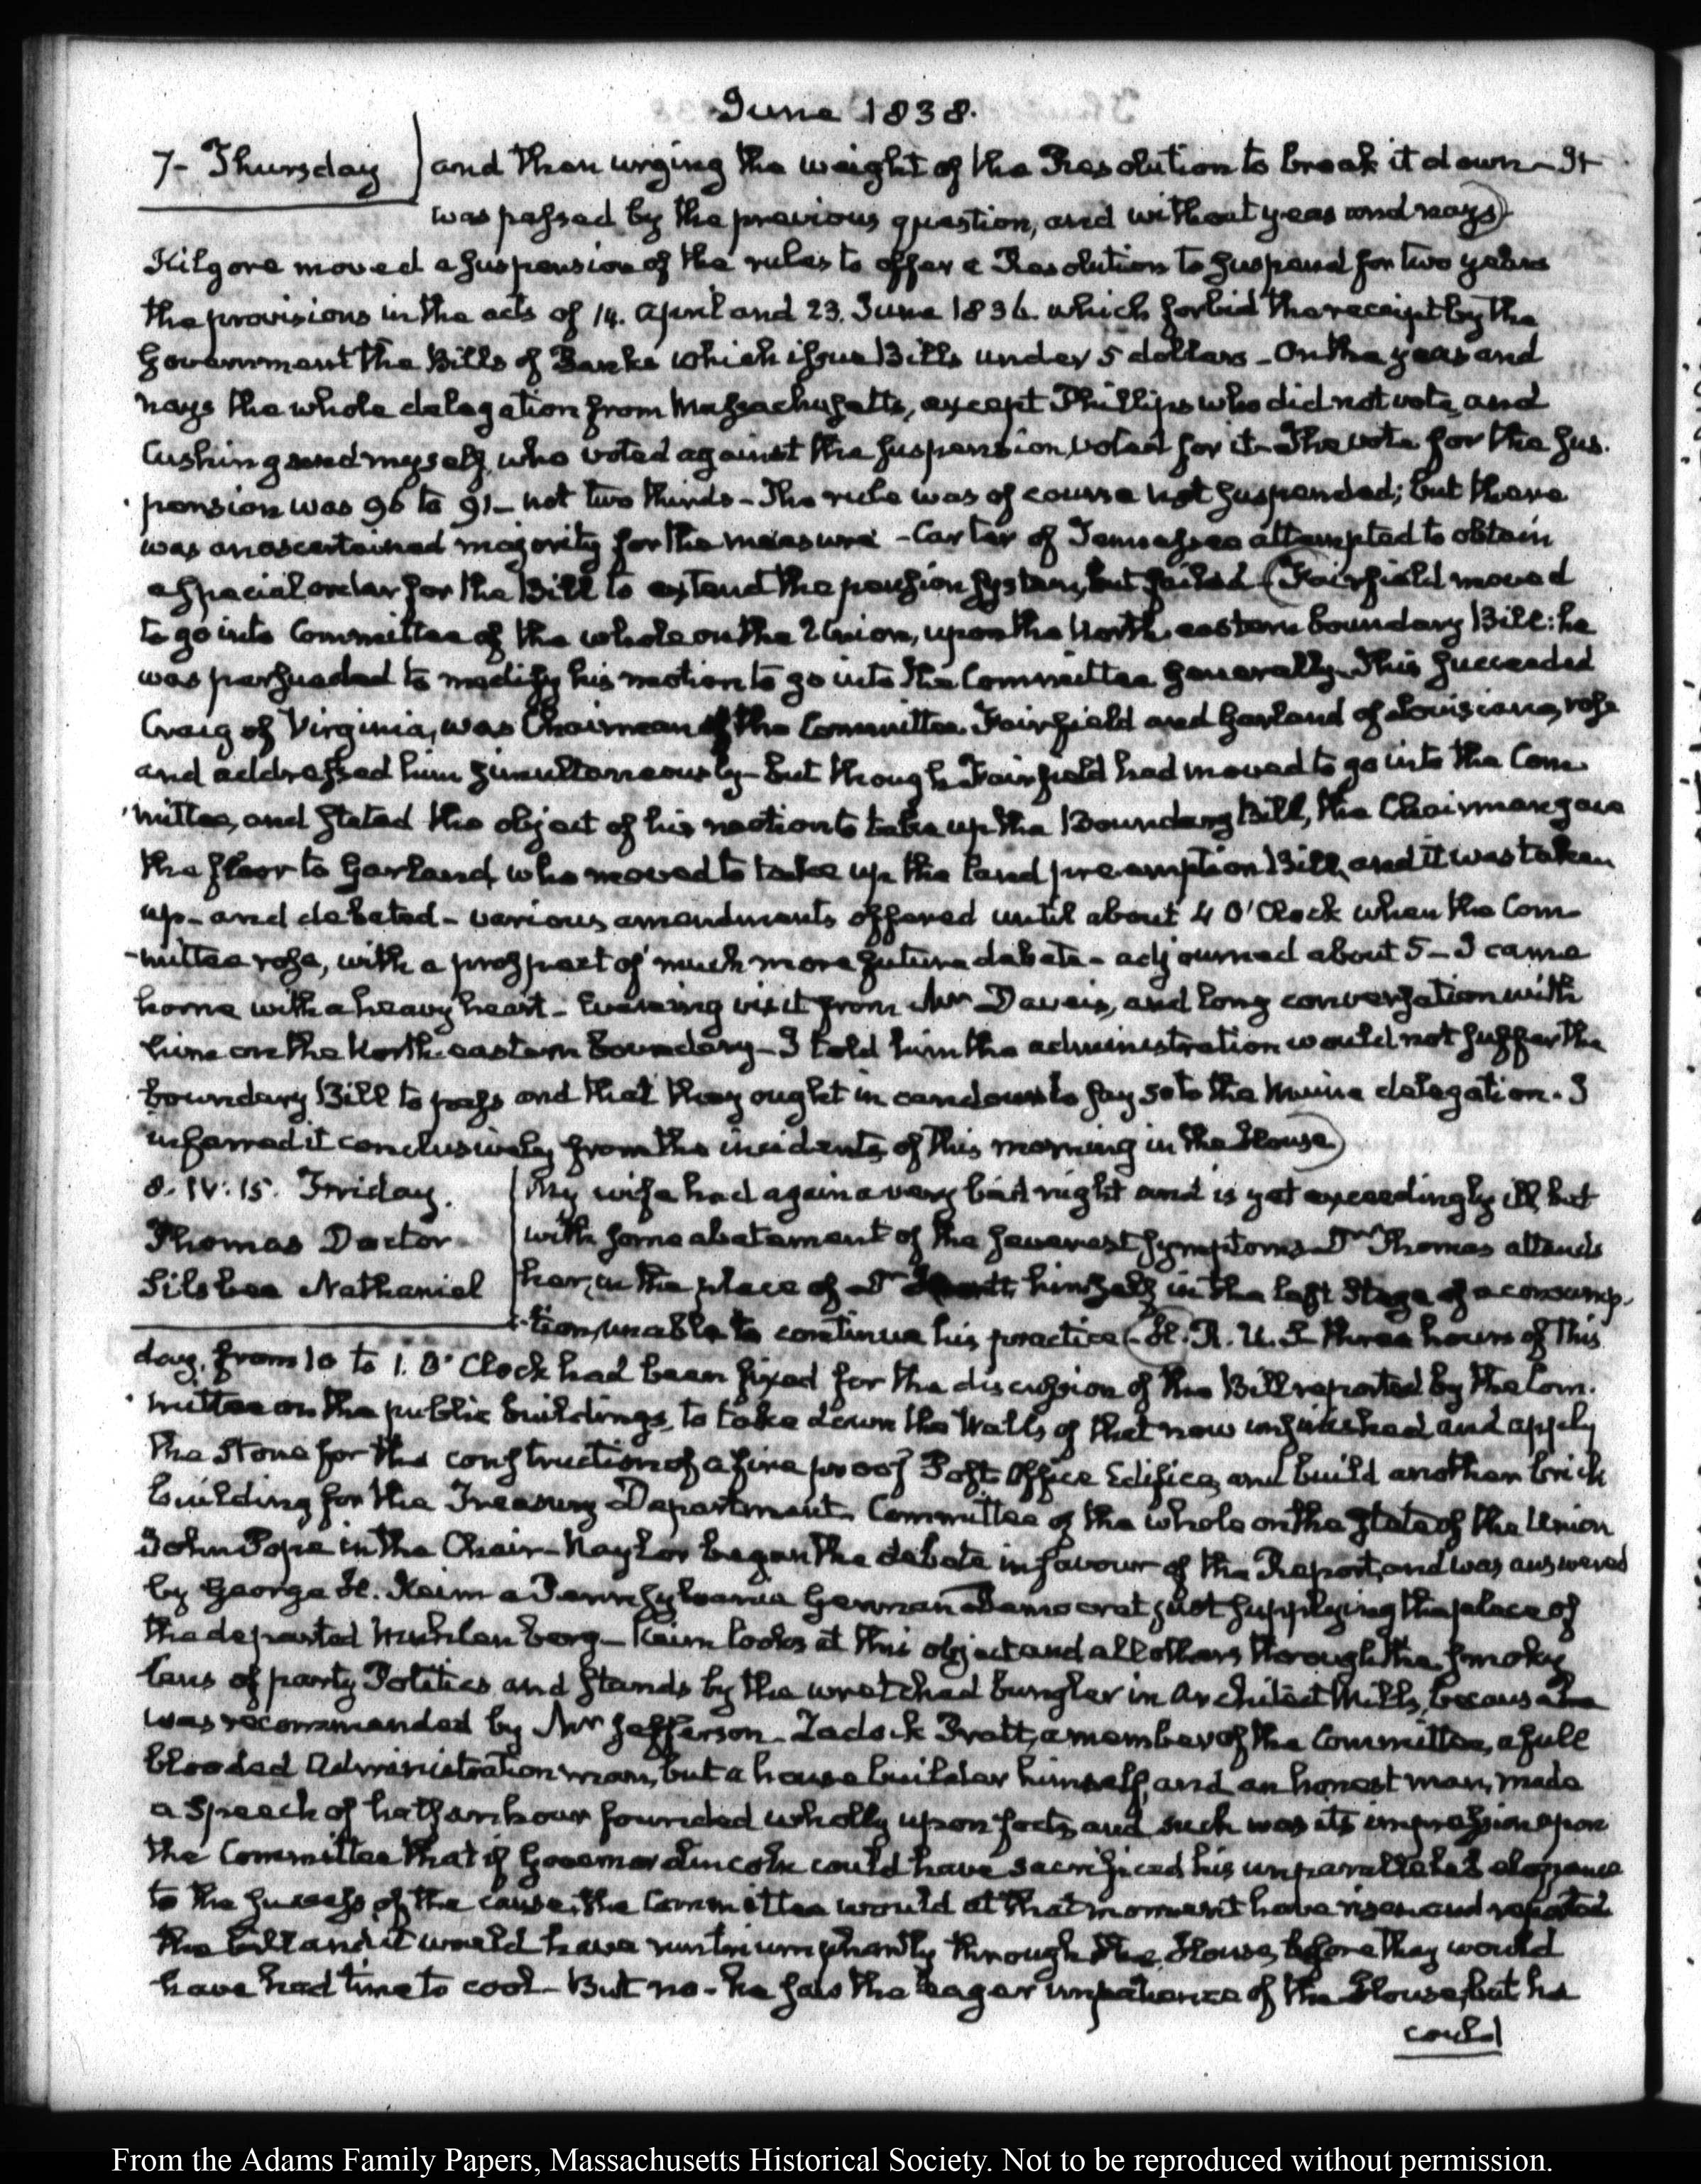 June 1838.
7- Thursday
and then urging the weight of the Resolution to break it down - It
was passed by the previous question, and without yeas and nays)
Kilgore moved a suspension of the rules to offer a Resolution to suspend for two years
the provisions in the acts of 14. April and 23. June 1836. which forbid the receipt by the
Government the Bills of Banks which issue Bills under 5 dollars - On the yeas and
nays the whole delegation from Massachusetts, except Phillips who did not vote, and
Cushing and myself, who voted against the suspension, voted for it - The vote for the sus.
pension was 96 to 91 - not two thirds - The rule was of course not suspended; but there
was an ascertained majority for the measure - Carter of Tennessee attempted to obtain
a special order for the Bill to extend the pension system, but failed (Fairfield moved
to go into Committee of the whole on the Union, upon the North-eastern boundary Bill: he
was persuaded to modify his motion to go into the Committee generally. This succeeded
Craig of Virginia, was Chairman of the Committee. Fairfield and Garland of Louisiana, rose
and addressed him simultaneously - but though Fairfield had moved to go into the Com-
mittee, and stated the object of his motion to take up the Boundary Bill, the Chairman gave
the floor to Garland, who moved to take up the land pre-emption Bill, and it was taken
up - and debated - various amendments offered until about 4 O'Clock when the Com-
-mittee rose, with a prospect of much more future debate - adjourned about 5 - I came
home with a heavy heart - Evening visit from Mr Daveis, and long conversation with
him on the North-eastern boundary - I told him the administration would not suffer the
boundary Bill to pass and that they ought in candour to say so to the Maine delegation. I
inferred it conclusively from the incidents of this morning in the House)
8. IV:15. Friday.
Thomas Doctor
Silsbee Nathaniel
My wife had again a very bad night and is yet exceedingly ill, but
with some abatement of the severest symptoms - Dr Thomas attends
her, in the place of Dr himself in the last stage of a consump-
-tion, unable to continue his practice (H. R. U. S. three hours of this
day, from 10 to 1. O'Clock had been fixed for the discussion of the Bill reported by the Com.
mittee on the public buildings, to take down the Walls of that now unfinished and apply
the Stone for the construction of a fire proof Post Office Edifice, and build another brick
building for the Treasury Department. Committee of the whole on the state of the Union
John Pope in the Chair - Naylor began the debate in favour of the Report, and was answered
by George M. Keim a Pennsylvania German Democrat just supplying the place of
the departed Muhlenberg - Keim looks at this object and all others through the smoky
lens of party Politics and stands by the wretched bungler in Architect Mills, because he
was recommended by Mr Jefferson - Zadock Pratt, a member of the Committee, a full
blooded Administration man, but a house builder himself, and an honest man, made
a speech of half an hour founded wholly upon facts, and such was its impression upon
the Committee that if Governor Lincoln could have sacrificed his unparalleled eloquence
to the success of the cause, the Committee would at that moment have risen and reported
the bill and it would have run triumphantly through the House, before they would
have had time to cool - But no - he saw the eager impatience of the House, but he
could
From the Adams Family Papers, Massachusetts Historical Society. Not to be reproduced without permission.